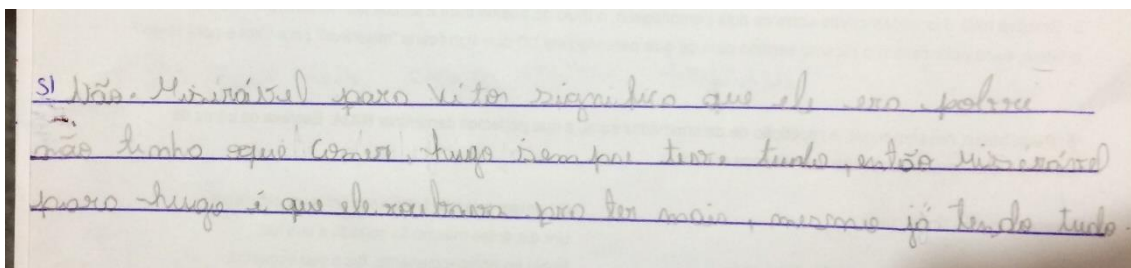 5) Não. Miserável para Vitor significa que ele era pobre
não tinha oque comer, hugo sempre teve tudo, então miserável
para hugo é que ele roubava pra ter mais, mesmo já tendo tudo.